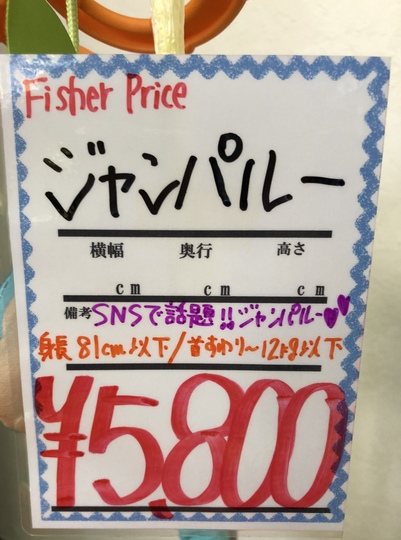 Fisher Price
ジャンパルー
横幅 奥行 高さ
cm cm cm
備考 SNSで話題!!ジャンパルー♥♥
身長 81cm以下/首すわり〜12kg以下
¥5,800